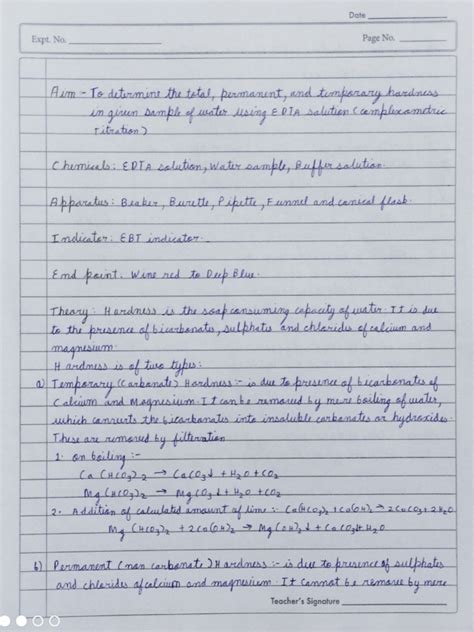 Date
Expt. No.
Page No.
Aim :- To determine the total, permanent, and temporary hardness
in given sample of water using EDTA solution (complexometric
Titration)
Chemicals: EDTA solution, Water sample, Buffer solution.
Apparatus: Beaker, Burette, Pipette, Funnel and conical flask.
Indicator: EBT indicator.
End point: Wine red to Deep Blue.
Theory: Hardness is the soap consuming capacity of water. It is due
to the presence of bicarbonates, sulphates and chlorides of calcium and
magnesium.
Hardness is of two types:
a) Temporary (Carbonate) Hardness :- is due to presence of bicarbonates of
Calcium and Magnesium. It can be removed by mere boiling of water,
which converts the bicarbonates into insoluble carbonates or hydroxides.
These are removed by filteration
1. on boiling :-
Ca(HCO3)2 → CaCO3↓ + H2O + CO2
Mg(HCO3)2 → MgCO3↓ + H2O + CO2
2. Addition of calculated amount of lime :- Ca(HCO3)2 + Ca(OH)2 → 2CaCO3 + 2H2O
Mg(HCO3)2 + 2Ca(OH)2 → Mg(OH)2↓ + CaCO3↓ + H2O
b) Permanent (non carbonate) Hardness :- is due to presence of sulphates
and chlorides of calcium and magnesium. It cannot be remove by mere
Teacher's Signature